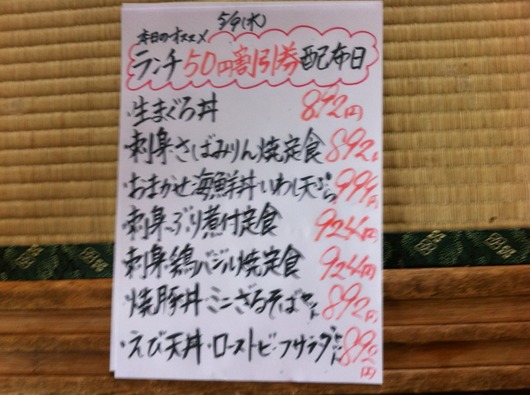 5/9(水)
本日のオススメ
ランチ50円割引券配布日
・生まぐろ丼 892円
・刺身・さばみりん焼定食 892円
・おまかせ海鮮丼・いわし天ぷら 999円
・刺身・ぶり煮付定食 924円
・刺身・鶏バジル焼定食 924円
・焼豚丼・ミニざるそばセット 892円
・えび天丼・ローストビーフサラダセット 892円